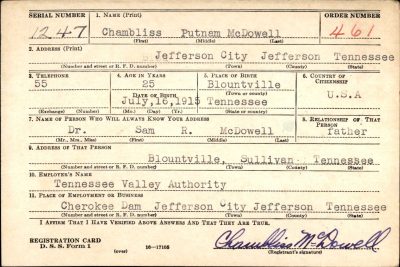 SERIAL NUMBER 1. NAME (Print) ORDER NUMBER
1247 Chambliss Putnam McDowell 461
(First) (Middle) (Last)
2. ADDRESS (Print)
Jefferson City Jefferson Tennessee
(Number and street or R. F. D. number) (Town) (County) (State)
3. TELEPHONE 4. AGE IN YEARS 5. PLACE OF BIRTH 6. COUNTRY OF CITIZENSHIP
55 25 Blountville
DATE OF BIRTH (Town or county) U.S.A
July,16,1915 Tennessee
(Exch.) (No.) (Mo.) (Day) (Yr.) (State or country)
7. NAME OF PERSON WHO WILL ALWAYS KNOW YOUR ADDRESS 8. RELATIONSHIP OF THAT PERSON
Dr. Sam R. McDowell father
(Mr., Mrs., Miss) (First) (Middle) (Last)
9. ADDRESS OF THAT PERSON
Blountville, Sullivan Tennessee
(Number and street or R. F. D. number) (Town) (County) (State)
10. EMPLOYER'S NAME
Tennessee Valley Authority
11. PLACE OF EMPLOYMENT OR BUSINESS
Cherokee Dam Jefferson City Jefferson Tennessee
(Number and street or R. F. D. number) (Town) (County) (State)
I AFFIRM THAT I HAVE VERIFIED ABOVE ANSWERS AND THAT THEY ARE TRUE.
REGISTRATION CARD
D. S. S. Form 1 (over) 16—17105 Chambliss McDowell
(Registrant's signature)